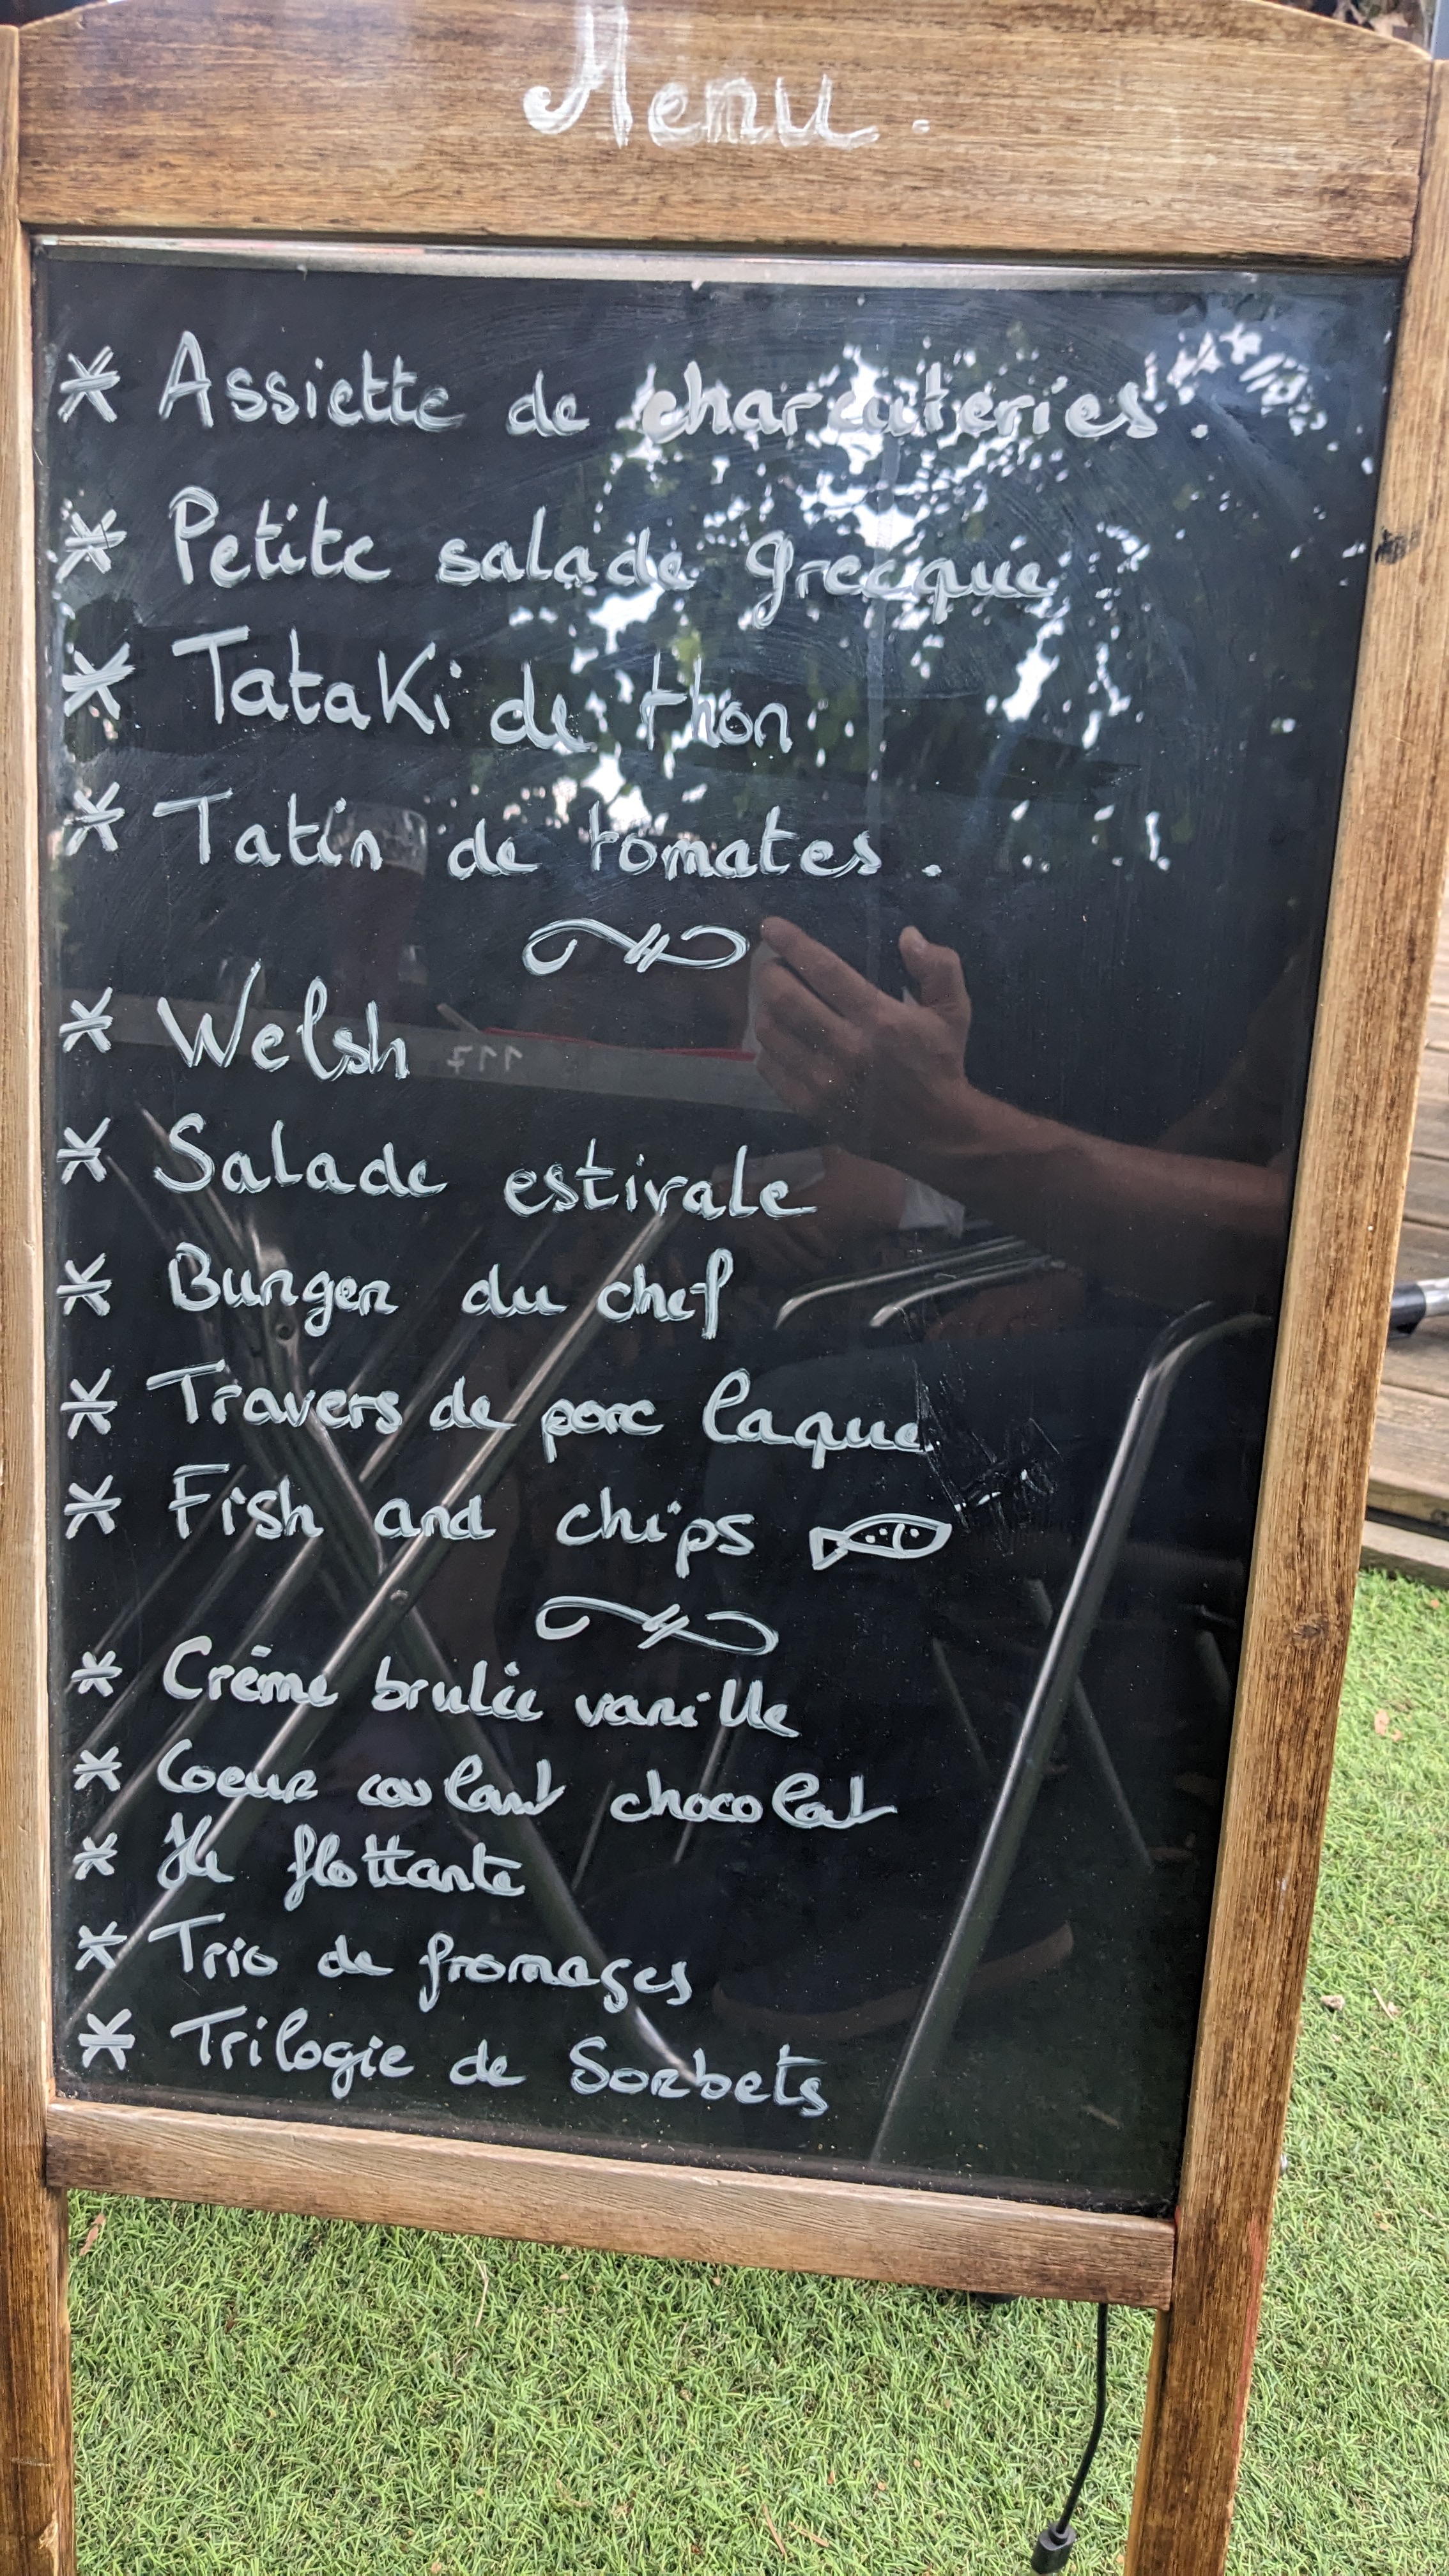 Menu.
* Assiette de charcuteries
* Petite salade grecque
* Tataki de thon
* Tatin de tomates.
* Welsh
* Salade estivale
* Burger du chef
* Travers de porc laque
* Fish and chips
* Crème brulée vanille
* Coeur coulant chocolat
* Ile flottante
* Trio de fromages
* Trilogie de Sorbets